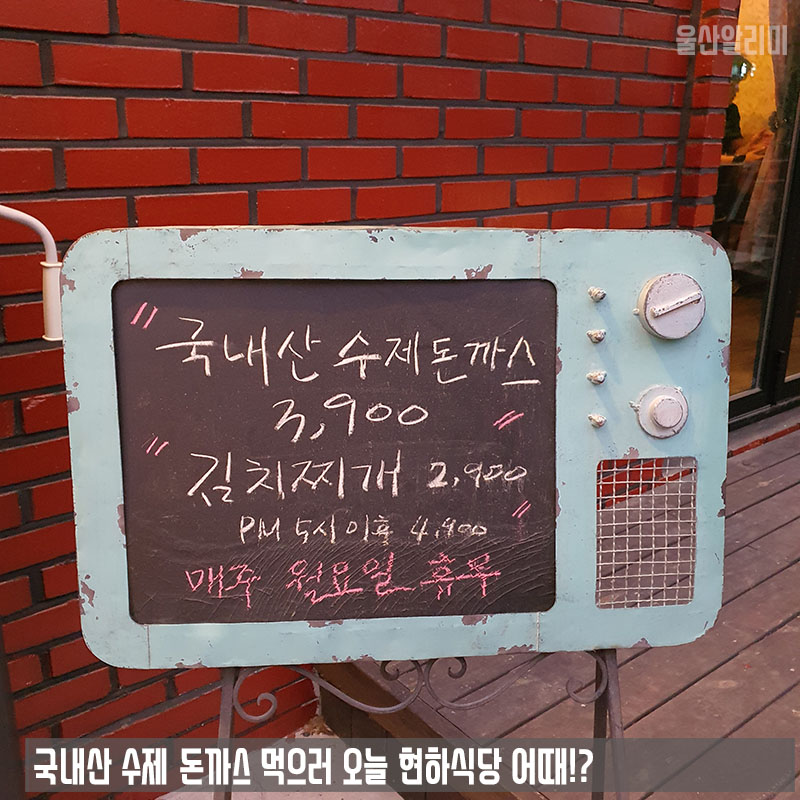 울산알리미
" 국내산 수제돈까스
3,900 "
" 김치찌개 2,900
PM 5시이후 4,900 "
매주 월요일 휴무
국내산 수제 돈까스 먹으러 오늘 현하식당 어때!?